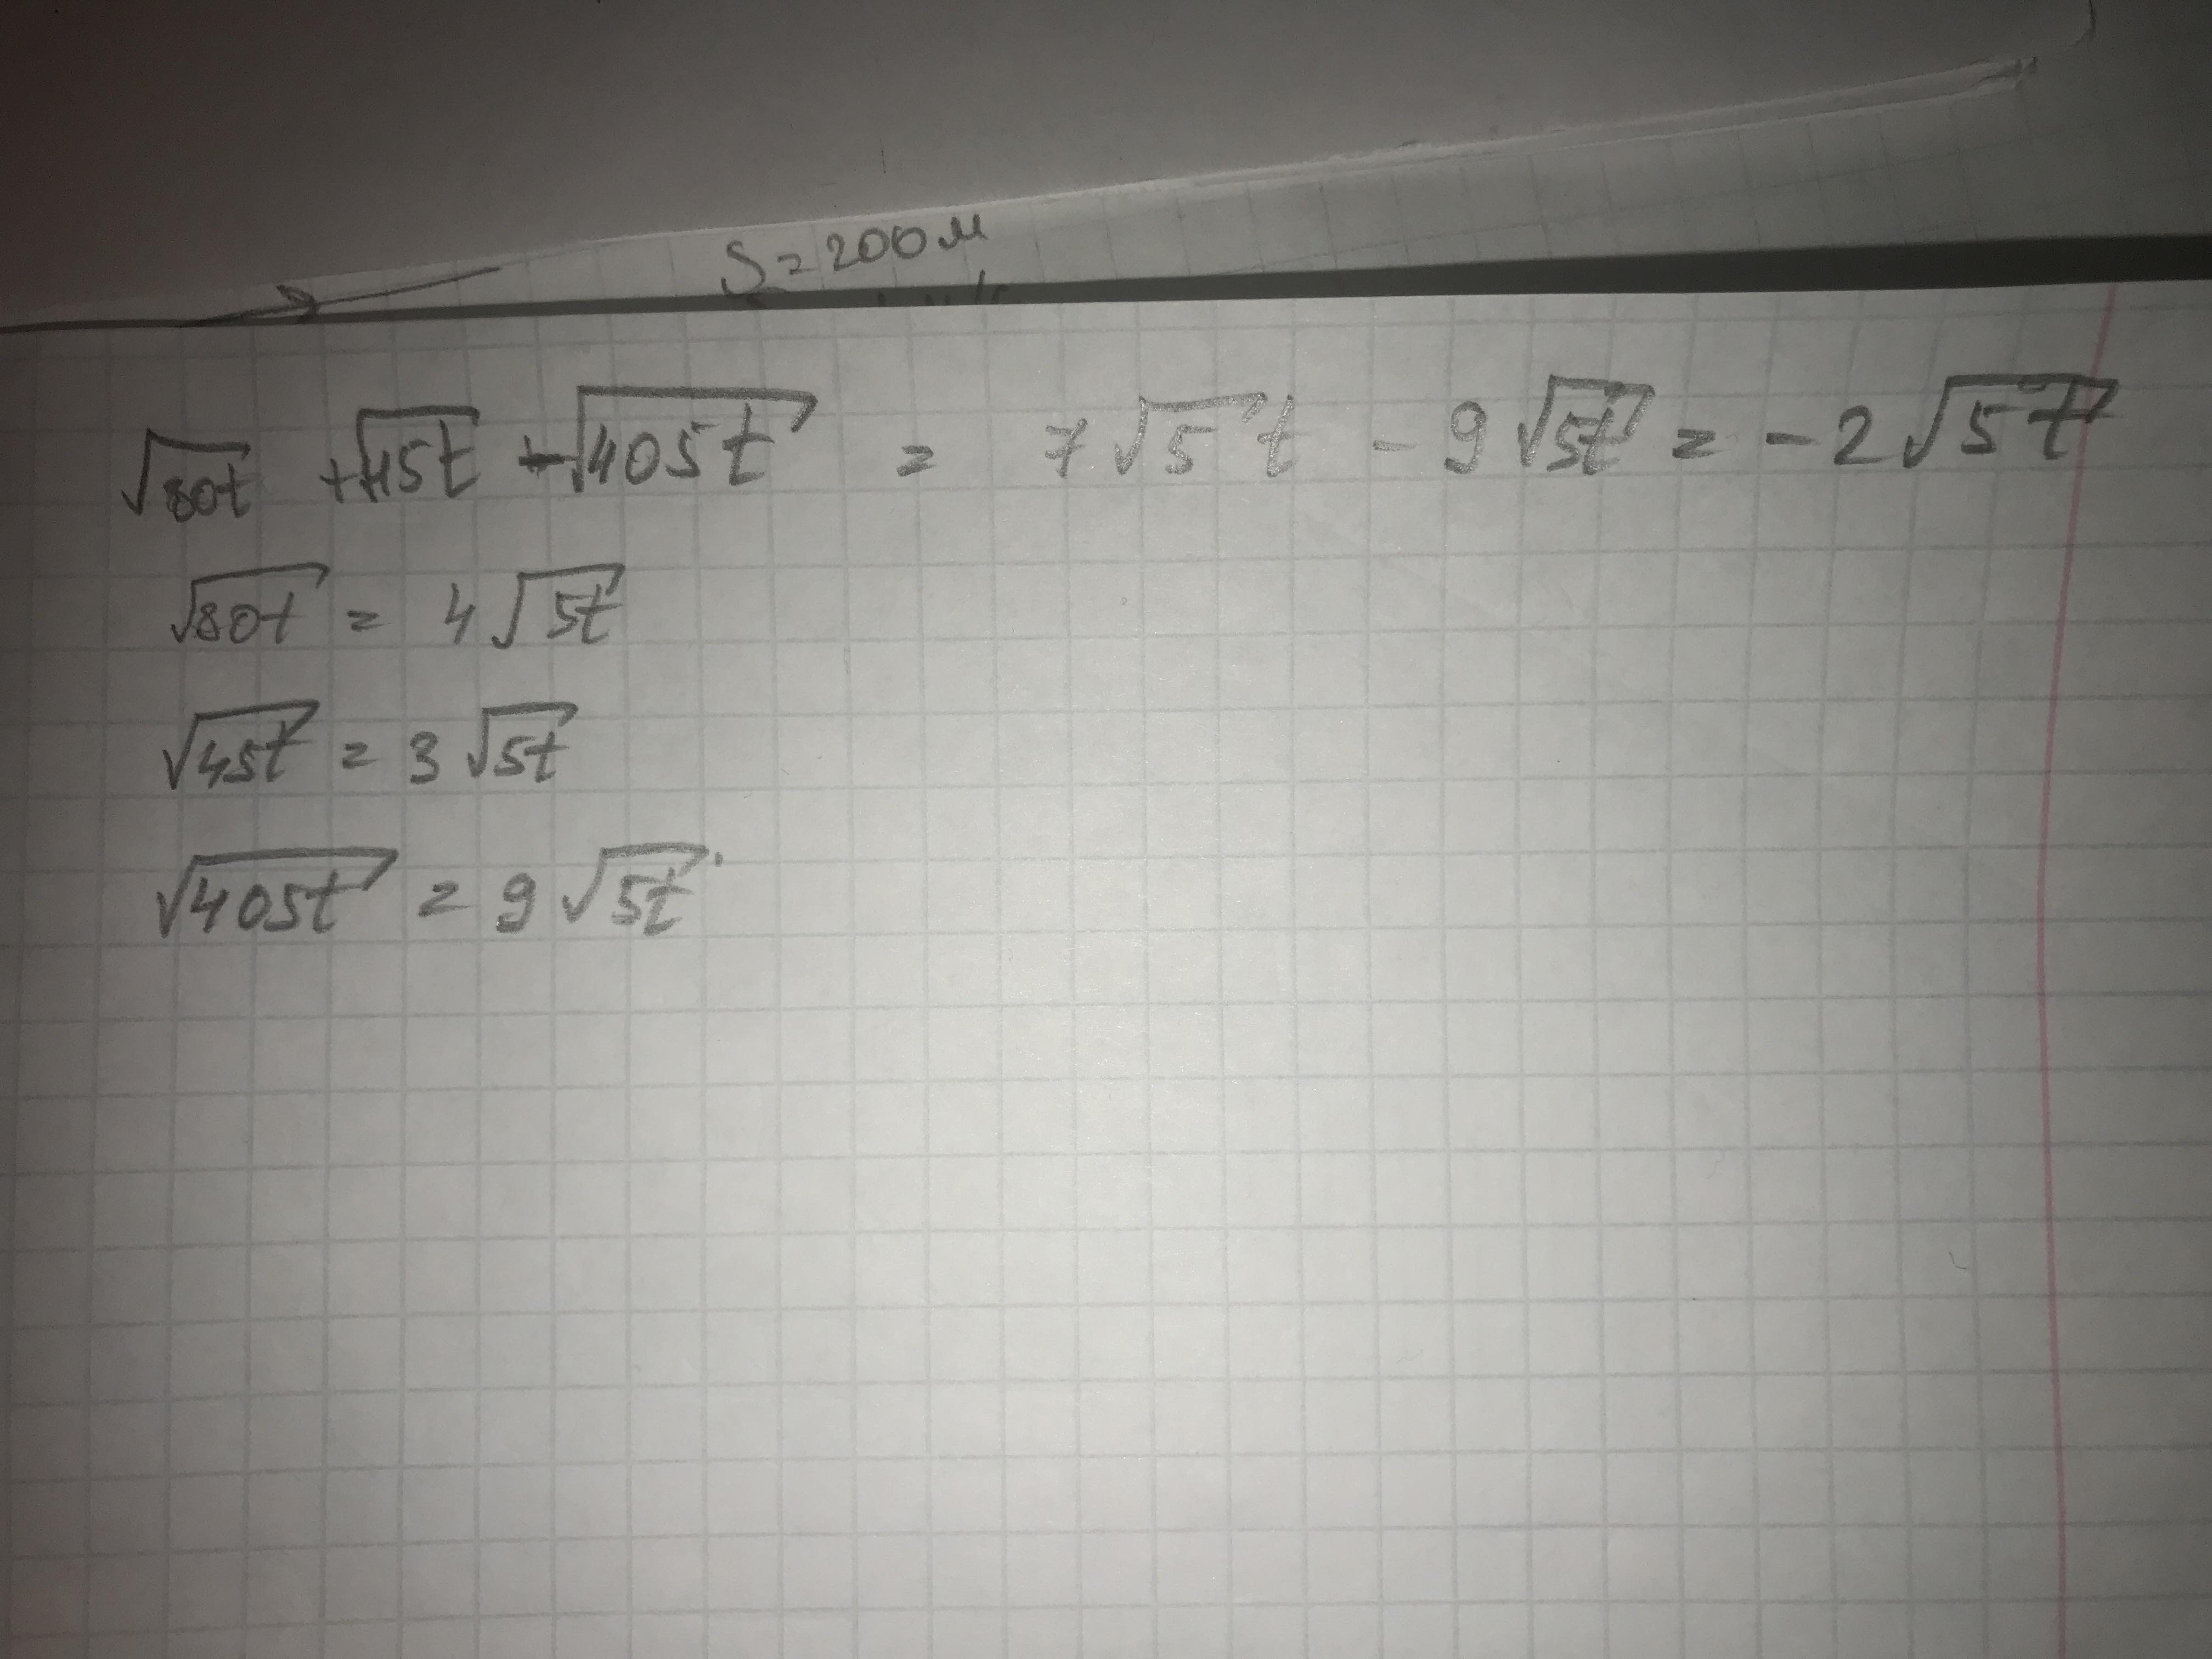 S = 200 м
√80t + √45t - √405t = 7√5t - 9√5t = -2√5t
√80t = 4√5t
√45t = 3√5t
√405t = 9√5t